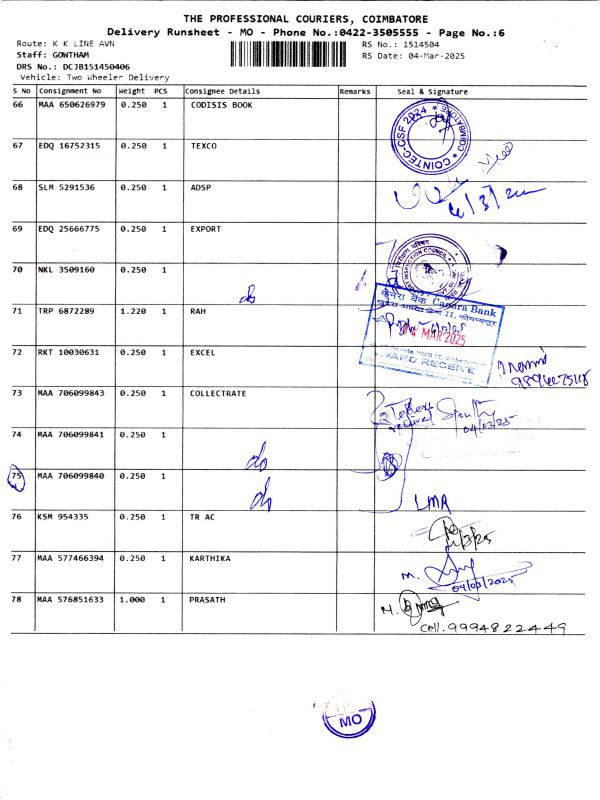 THE PROFESSIONAL COURIERS, COIMBATORE
Delivery Runsheet - MO - Phone No.:0422-3505555 - Page No.:6
Route: K K LINE AVN
RS No.: 1514504
Staff: GOWTHAM
RS Date: 04-Mar-2025
DRS No.: DCJB151450406
Vehicle: Two Wheeler Delivery
S No Consignment No Weight PCS Consignee Details Remarks Seal & Signature
66 MAA 650626979 0.250 1 CODISIS BOOK
COINTEC-CSF 2024 * COIMBATORE *
67 EDQ 16752315 0.250 1 TEXCO
68 SLM 5291536 0.250 1 ADSP
4/3/20
69 EDQ 25666775 0.250 1 EXPORT
70 NKL 3509160 0.250 1
do
केनरा बैंक Canara Bank
71 TRP 6872289 1.220 1 RAH
04 MAR 2025
72 RKT 10030631 0.250 1 EXCEL
INWARD RECEIVE
73 MAA 706099843 0.250 1 COLLECTRATE
received
04/03/25
74 MAA 706099841 0.250 1
do
75 MAA 706099840 0.250 1
do
LMR
76 KSM 954335 0.250 1 TR AC
4/3/25
77 MAA 577466394 0.250 1 KARTHIKA
M.
04/03/2025
78 MAA 576851633 1.000 1 PRASATH
Cell. 9994822449
MO